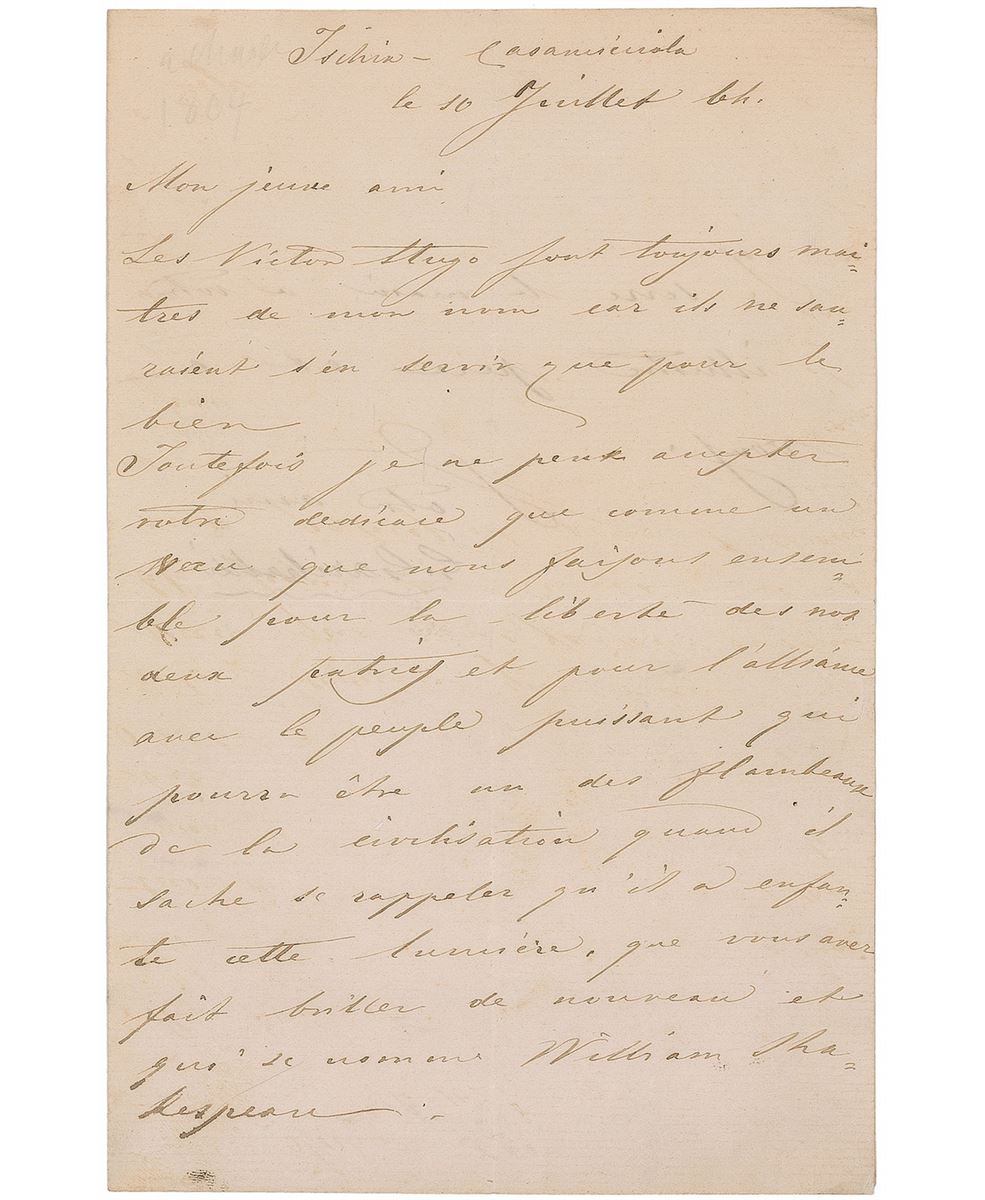 Ischia - Casamicciola
le 10 Juillet 64.
Mon jeune ami
Les Victor Hugo sont toujours mai=
tres de mon nom car ils ne sau=
raient s'en servir que pour le
bien
Toutefois je ne peux accepter
votre dedicace que comme un
vœu que nous faisons ensem=
ble pour la liberté des nos
deux patries et pour l'alliance
avec le peuple puissant qui
pourra être un des flambeaux
de la civilisation quand il
sache se rappeler qu'il a enfan=
té cette lumière, que vous avez
fait briller de nouveau et
qui se nomme William Sha=
kespeare.